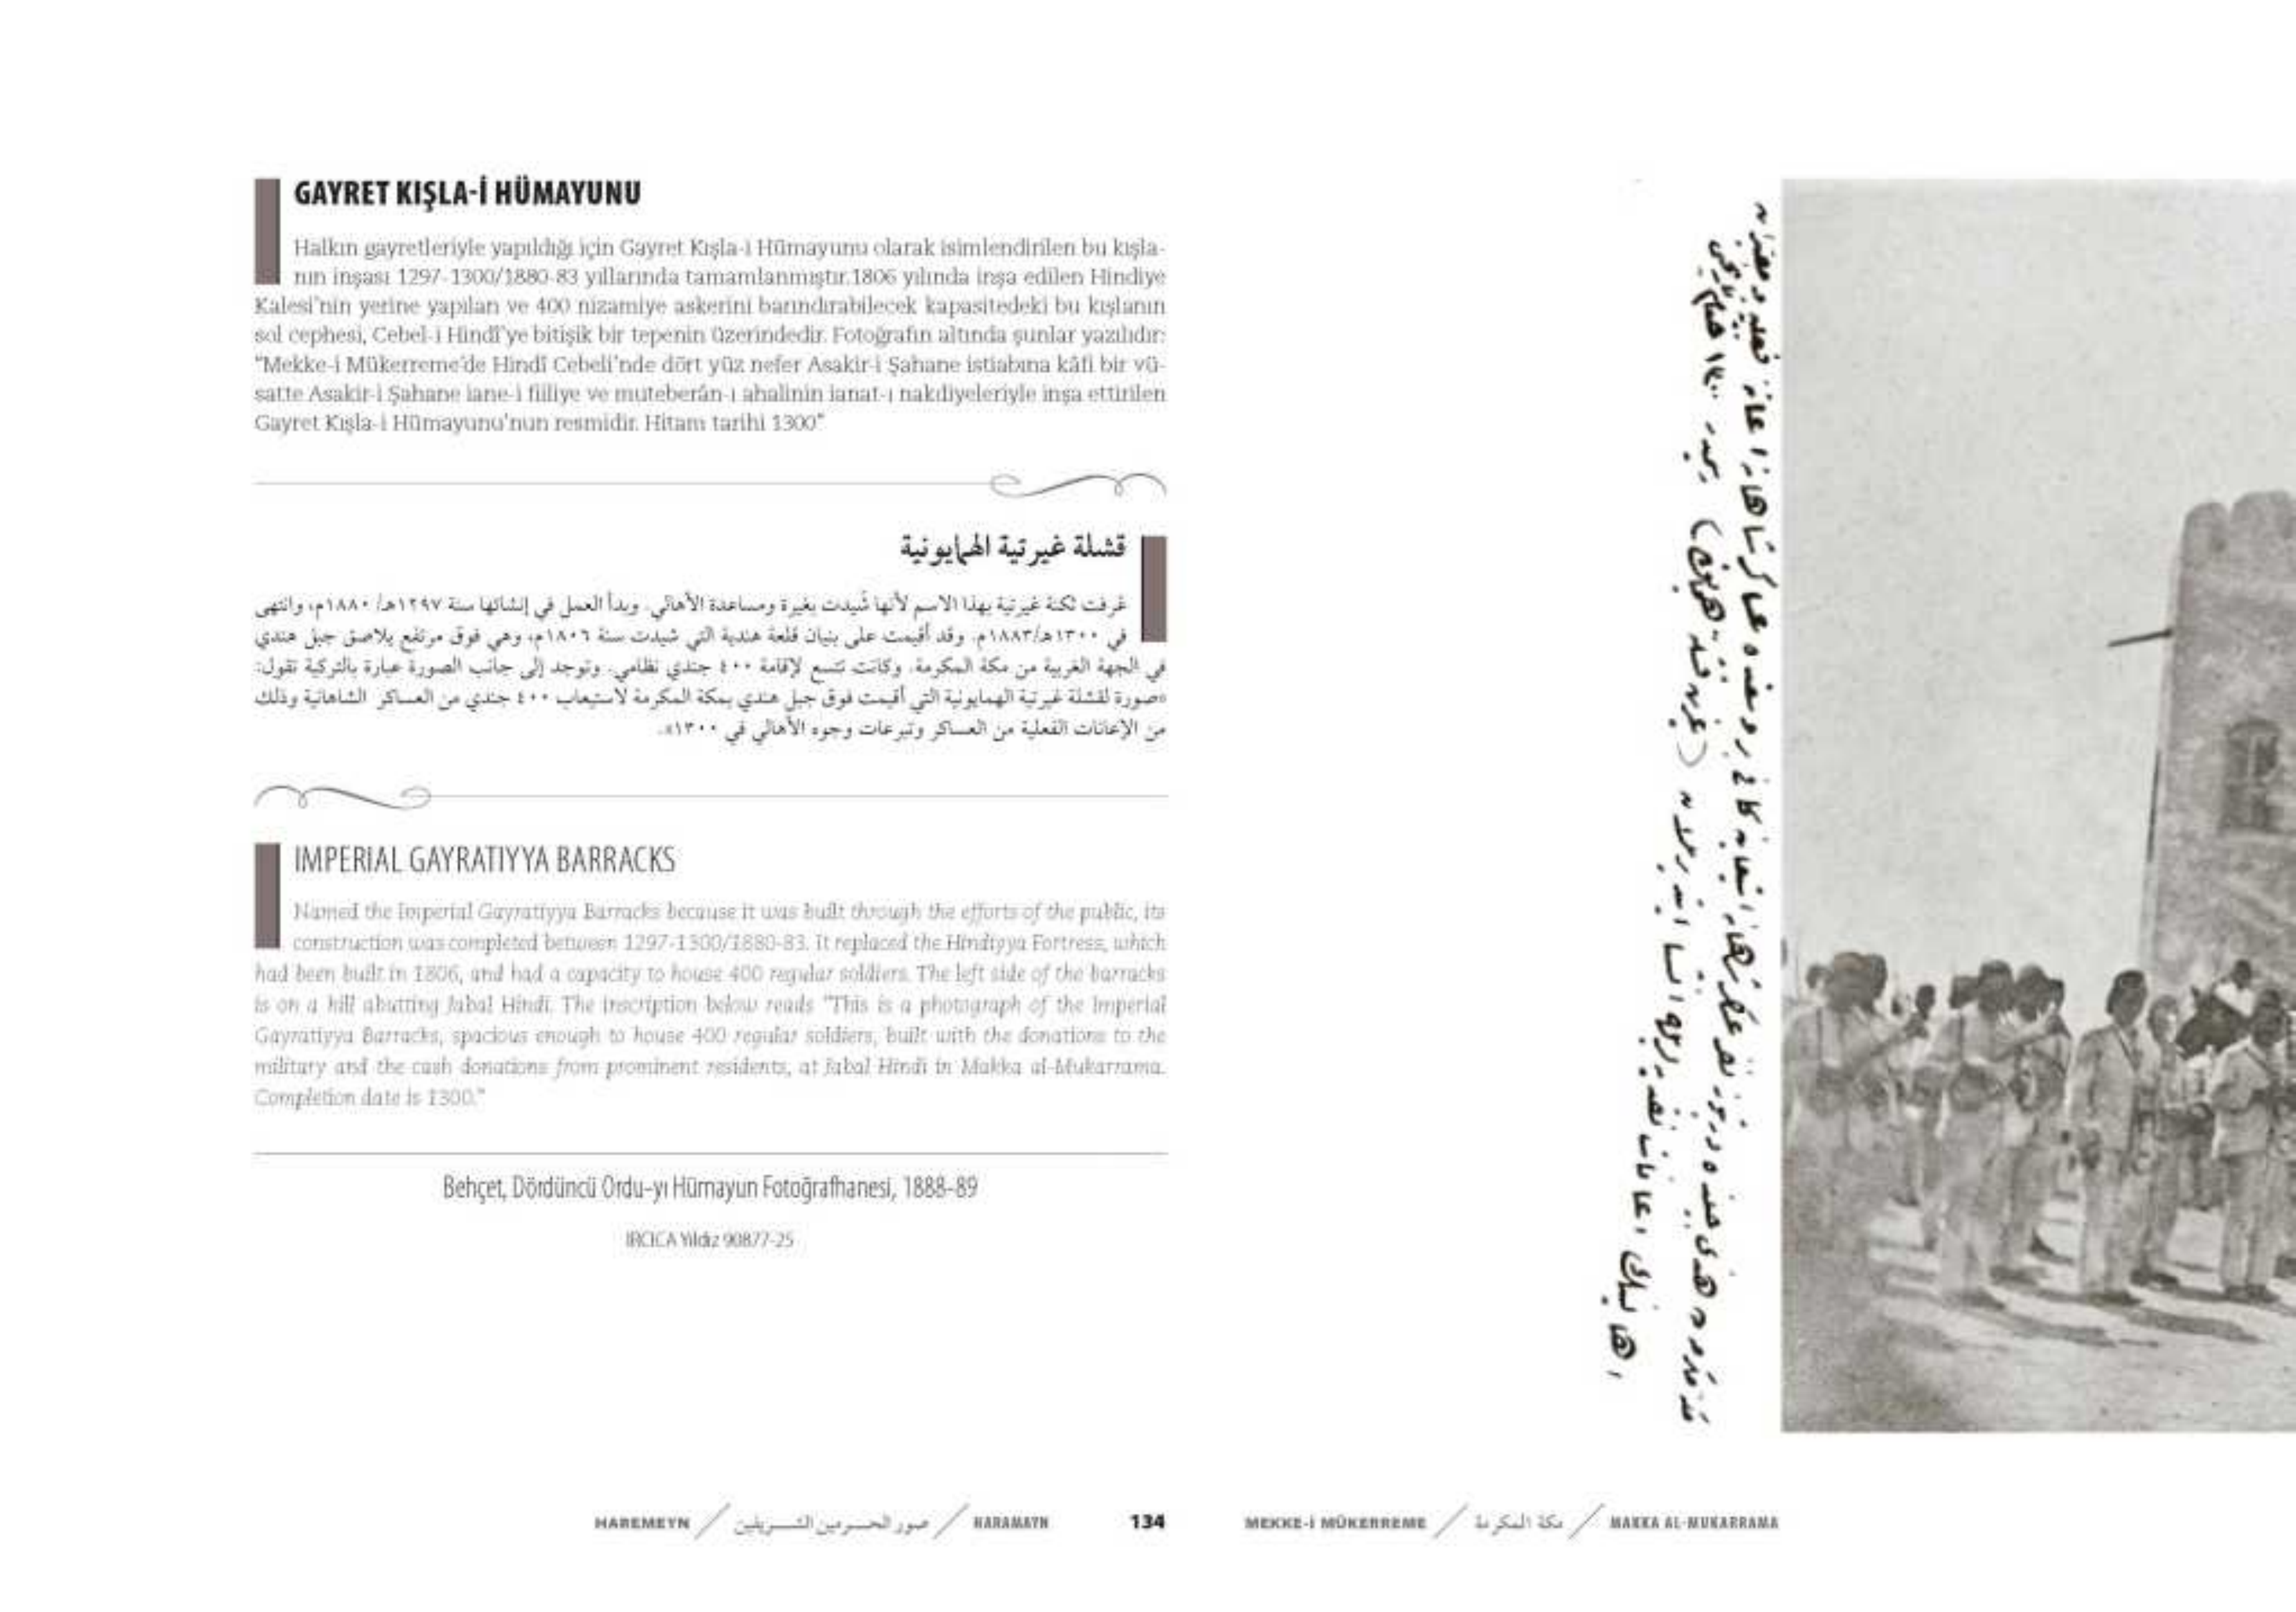 GAYRET KIŞLA-İ HÜMAYUNU
Halkın gayretleriyle yapıldığı için Gayret Kışla-i Hümayunu olarak isimlendirilen bu kışla-
nın inşası 1297-1300/1880-83 yıllarında tamamlanmıştır.1806 yılında inşa edilen Hindiye
Kalesi'nin yerine yapılan ve 400 nizamiye askerini barındırabilecek kapasitedeki bu kışlanın
sol cephesi, Cebel-i Hindî'ye bitişik bir tepenin üzerindedir. Fotoğrafın altında şunlar yazılıdır:
"Mekke-i Mükerreme'de Hindî Cebeli'nde dört yüz nefer Asakir-i Şahane istiabına kâfi bir vü-
satte Asakir-i Şahane iane-i fiiliye ve muteberân-ı ahalinin ianat-ı nakdiyeleriyle inşa ettirilen
Gayret Kışla-i Hümayunu'nun resmidir. Hitam tarihi 1300"
قشلة غيرتية الهمايونية
عُرفت ثكنة غيرتية بهذا الاسم لأنها شُيدت بغيرة ومساعدة الأهالي. وبدأ العمل في إنشائها سنة ١٢٩٧هـ/ ١٨٨٠م، وانتهى
في ١٣٠٠هـ/١٨٨٣م. وقد أقيمت على بنيان قلعة هندية التي شيدت سنة ١٨٠٦م، وهي فوق مرتفع يلاصق جبل هندي
في الجهة الغربية من مكة المكرمة. وكانت تتسع لإقامة ٤٠٠ جندي نظامي. وتوجد إلى جانب الصورة عبارة بالتركية تقول:
«صورة لقشلة غيرتية الهمايونية التي أقيمت فوق جبل هندي بمكة المكرمة لاستيعاب ٤٠٠ جندي من العساكر الشاهانية وذلك
من الإعانات الفعلية من العساكر وتبرعات وجوه الأهالي في ١٣٠٠».
IMPERIAL GAYRATIYYA BARRACKS
Named the Imperial Gayratiyya Barracks because it was built through the efforts of the public, its
construction was completed between 1297-1300/1880-83. It replaced the Hindiyya Fortress, which
had been built in 1806, and had a capacity to house 400 regular soldiers. The left side of the barracks
is on a hill abutting Jabal Hindi. The inscription below reads "This is a photograph of the Imperial
Gayratiyya Barracks, spacious enough to house 400 regular soldiers, built with the donations to the
military and the cash donations from prominent residents, at Jabal Hindi in Makka al-Mukarrama.
Completion date is 1300."
Behçet, Dördüncü Ordu-yı Hümayun Fotoğrafhanesi, 1888-89
IRCICA Yıldız 90877-25
HAREMEYN / صور الحرمين الشريفين / HARAMAYN 134
MEKKE-İ MÜKERREME / مكة المكرمة / MAKKA AL-MUKARRAMA